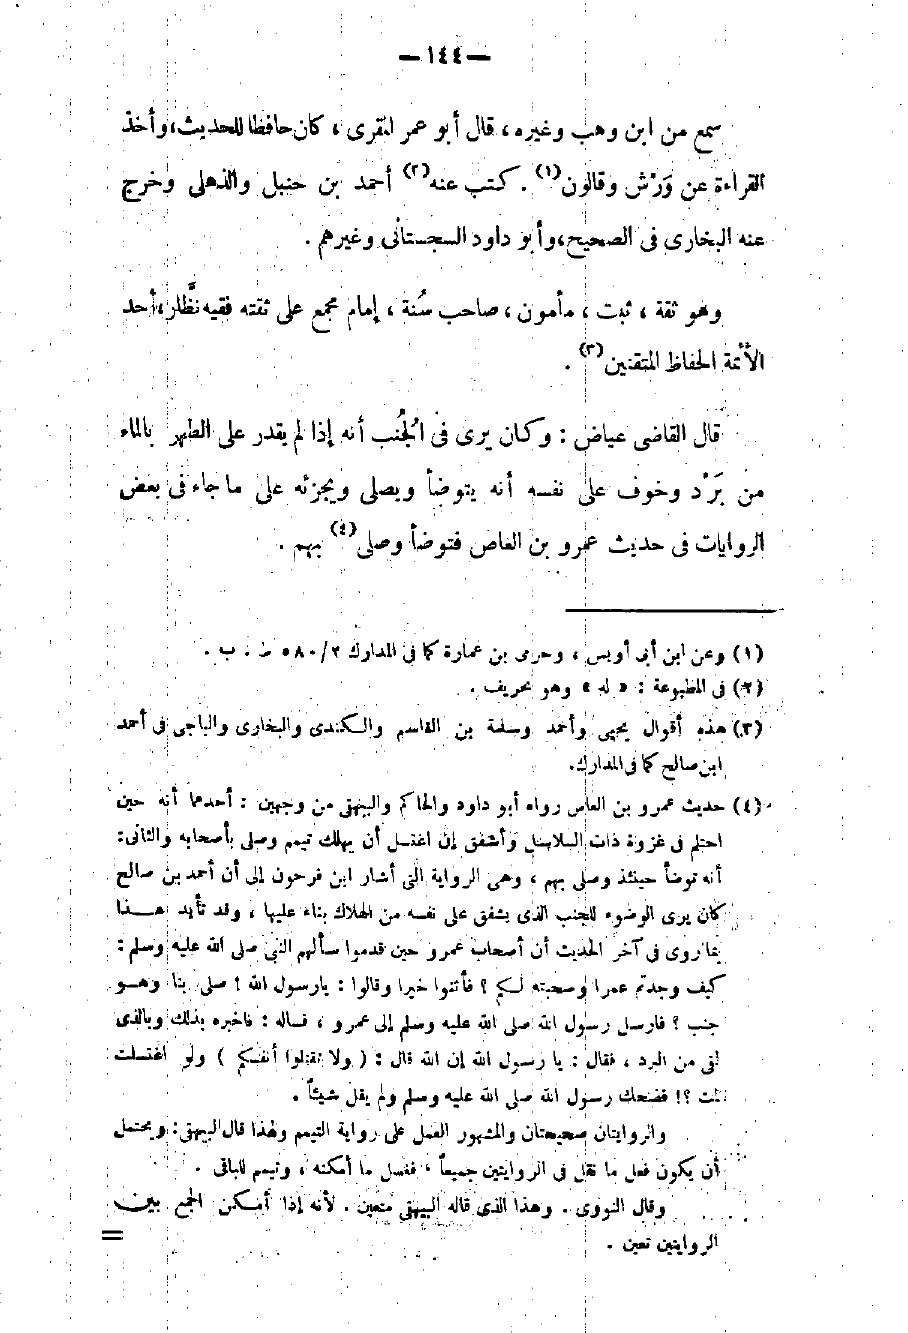 — ١٤٤ —
سمع من ابن وهب وغيره ، قال أبو عمر المقرى ، كان حافظا للحديث ، وأخذ
القراءة عن وَرْش وقالون (١) . كتب عنه (٢) أحمد بن حنبل والذهلى وخرج
عنه البخارى فى الصحيح ، وأبو داود السجستانى وغيرهم .
وهو ثقة ، ثبت ، مأمون ، صاحب سُنة ، إمام مجمع على ثقته فقيه نظَّار ، أحد
الأئمة الحفاظ المتقنين (٣) .
قال القاضى عياض : وكان يرى فى الجُنب أنه إذا لم يقدر على الطهر بالماء
من بَرْد وخوف على نفسه أنه يتوضأ ويصلى ويجزئه على ما جاء فى بعض
الروايات فى حديث عمرو بن العاص فتوضأ وصلى (٤) بهم .
(١) وعن ابن أبى أويس ، وحرمى بن عمارة كما فى المدارك ٢/ ٥٨٠ ط . ب .
(٢) فى المطبوعة : « له » وهو تحريف .
(٣) هذه أقوال يحيى وأحمد وسلمة بن القاسم والكندى والبخارى والباجى فى أحمد
ابن صالح كما فى المدارك .
(٤) حديث عمرو بن العاس رواه أبو داود والحاكم والبيهقى من وجهين : أحدهما أنه حين
احتلم فى غزوة ذات السلاسل وأشفق إن اغتسل أن يهلك تيمم وصلى بأصحابه والثانى :
أنه توضأ حينئذ وصلى بهم ، وهى الرواية التى أشار ابن فرحون إلى أن أحمد بن صالح
كان يرى الوضوء للجنب الذى يشفق على نفسه من الهلاك بناء عليها ، وقد تأيد هـذا
بما روى فى آخر الحديث أن أصحاب عمرو حين قدموا سألهم النبى صلى الله عليه وسلم :
كيف وجدتم عمرا وصحبته لكم ؟ فأثنوا خيرا وقالوا : يارسول الله ! صلى بنا وهـو
جنب ؟ فارسل رسول الله صلى الله عليه وسلم إلى عمرو ، فساله : فاخبره بذلك وبالذى
لقى من البرد ، فقال : يا رسول الله إن الله قال : ( ولا تقتلوا أنفسكم ) ولو اغتسلت
مت ؟! فضحك رسول الله صلى الله عليه وسلم ولم يقل شيئاً .
والروايتان صحيحتان والمشهور العمل على رواية التيمم ولهذا قال البيهقى : ويحتمل
أن يكون فعل ما نقل فى الروايتين جميعاً ، فغسل ما أمكنه ، وتيمم للباقى .
وقال النووى . وهذا الذى قاله البيهقى متعين . لأنه إذا أمـكن الجمع بين
الروايتين تعين .
=